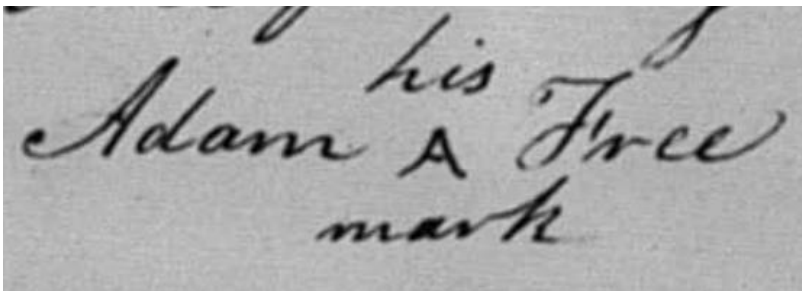 his
Adam A Free
mark